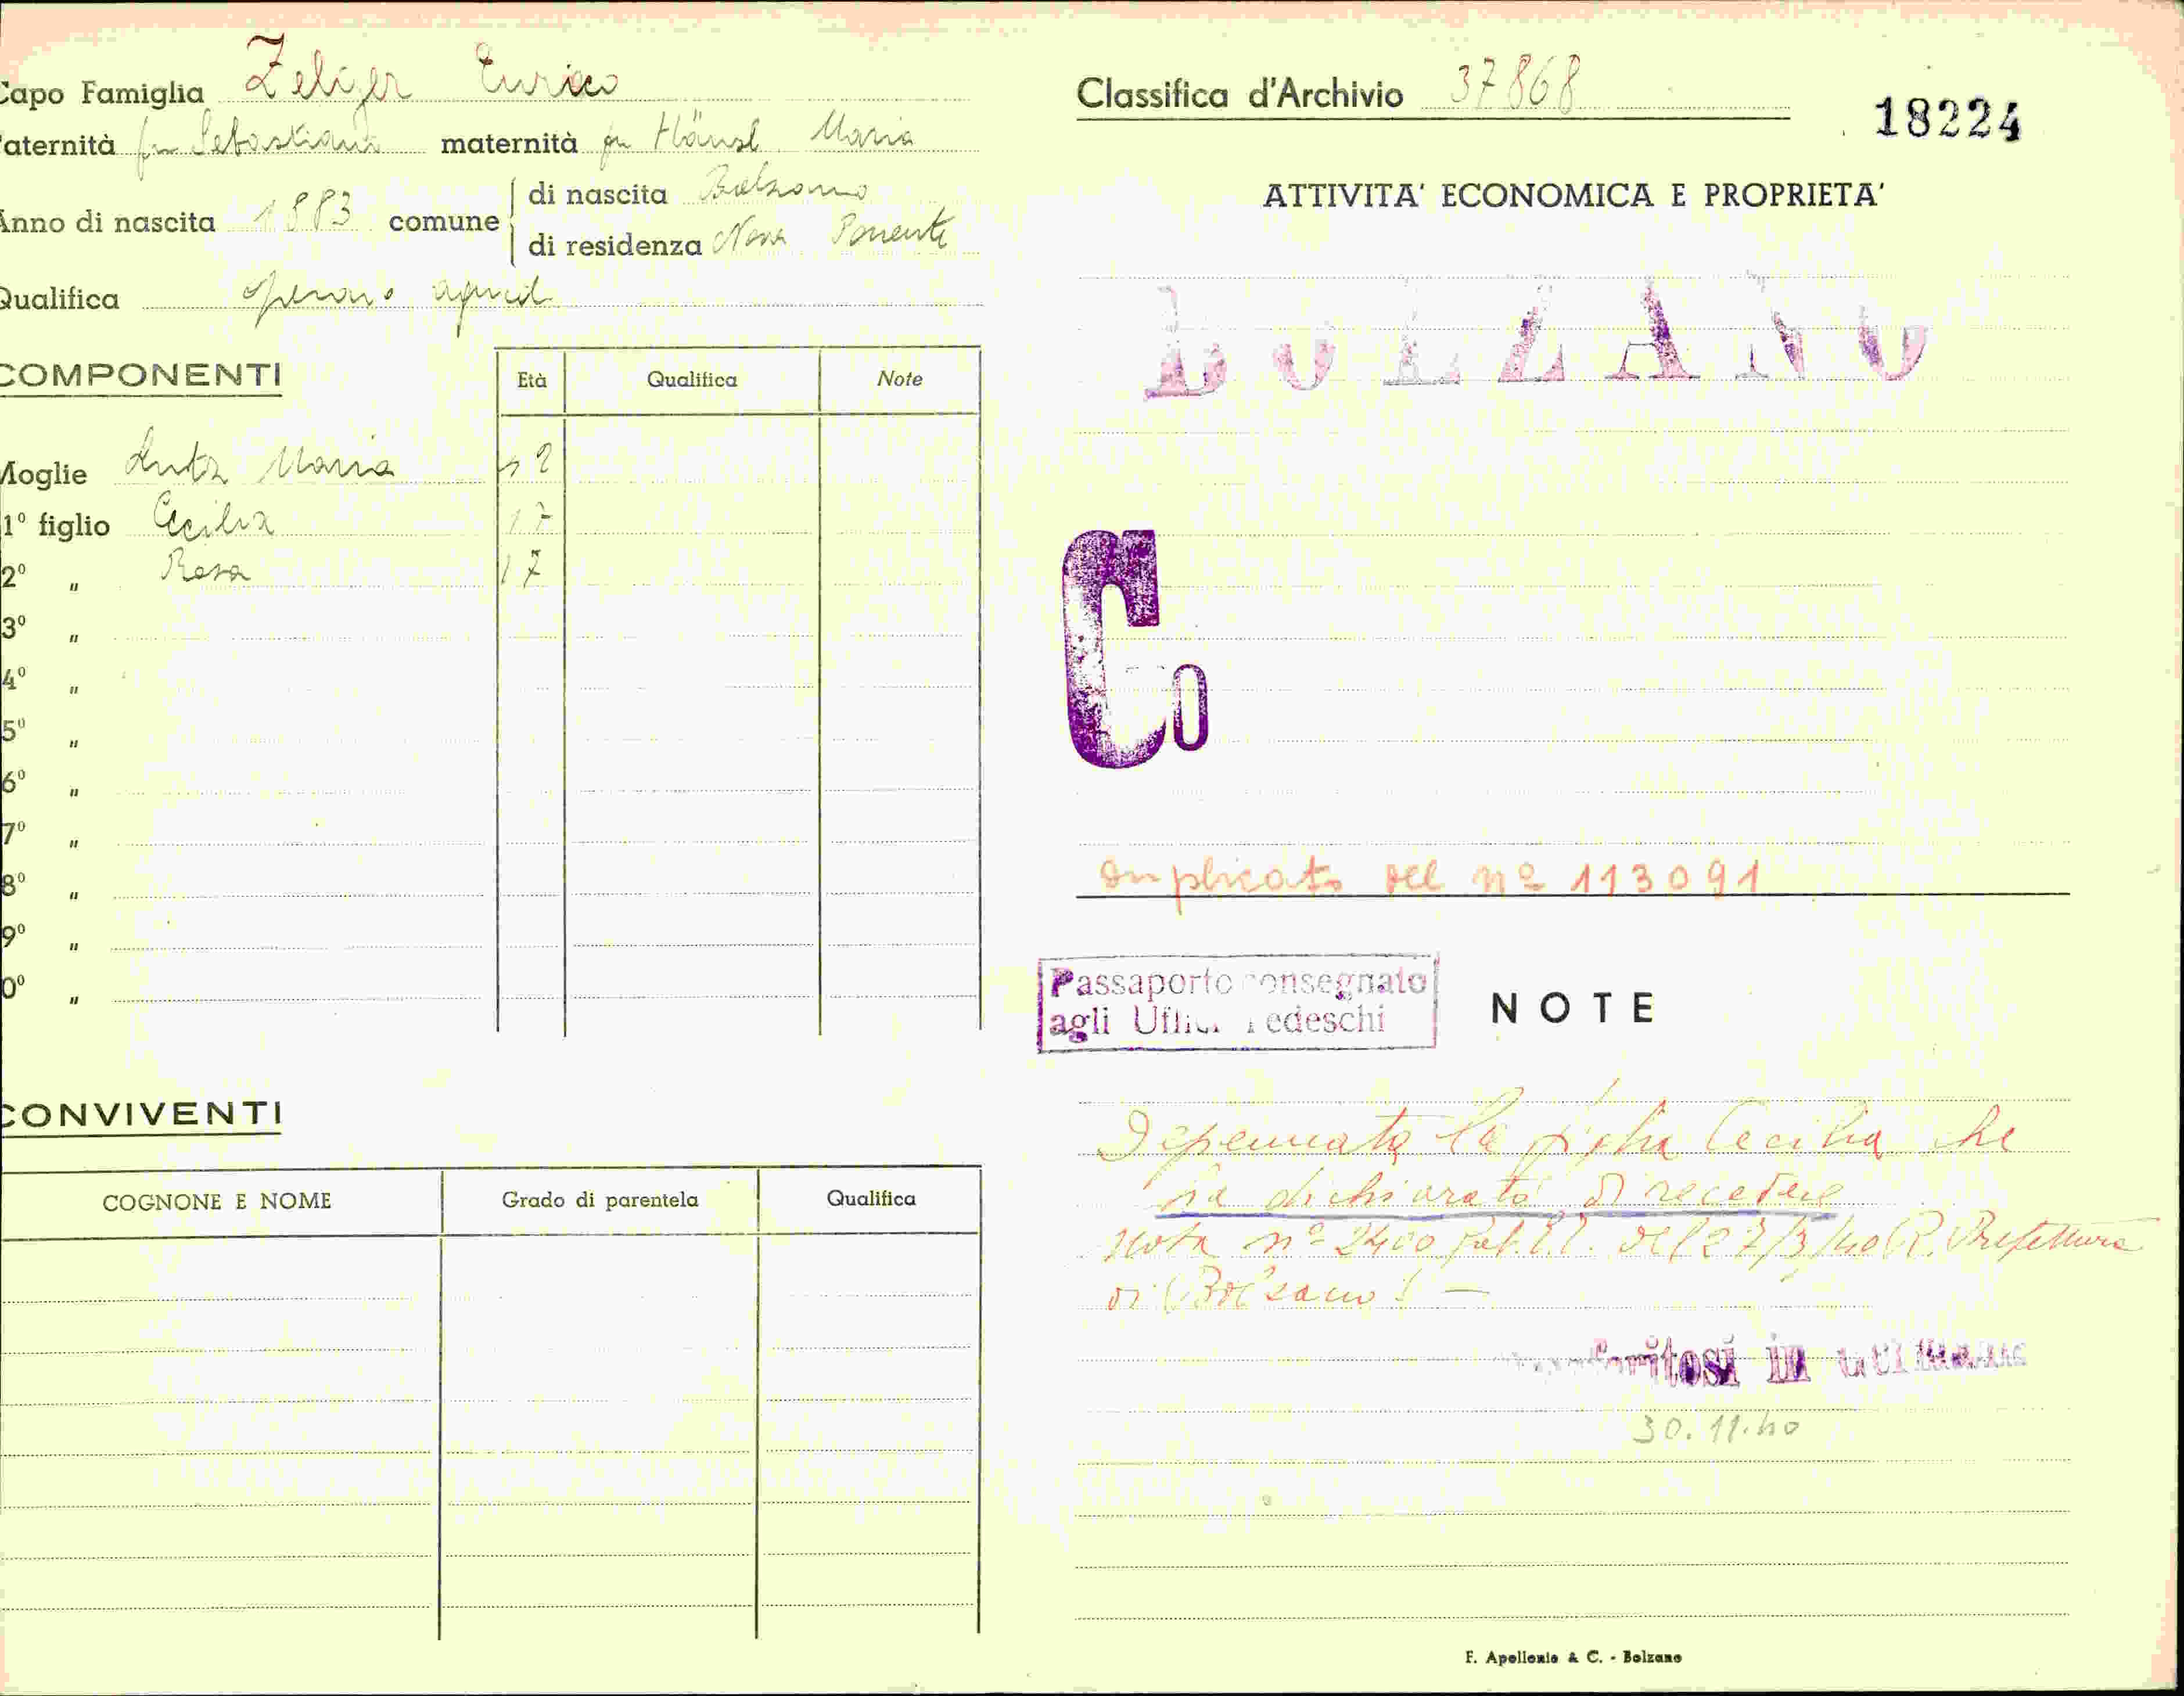 Capo Famiglia Zelger Enrico
Paternità fu Sebastiano maternità fu Hänsl Maria
Anno di nascita 1883 comune di nascita Bolzano
di residenza Nova Ponente
Qualifica operaio agricol
COMPONENTI Età Qualifica Note
Moglie Maria
1º figlio Cecilia 17
2º " Rosa 17
3º "
4º "
5º "
6º "
7º "
8º "
9º "
0º "
CONVIVENTI
COGNONE E NOME Grado di parentela Qualifica
Classifica d'Archivio 37868
18224
ATTIVITA' ECONOMICA E PROPRIETA'
BOLZANO
Co
Duplicato del nº 113091
Passaporto consegnato
agli Uffici Tedeschi
NOTE
Depennata la figlia Cecilia che
ha dichiarato di recedere
nota nº 2400 Gab. del 27/3/40 R. Prefettura
di Bolzano! —
in
30.11.40
F. Apollonio & C. - Bolzano